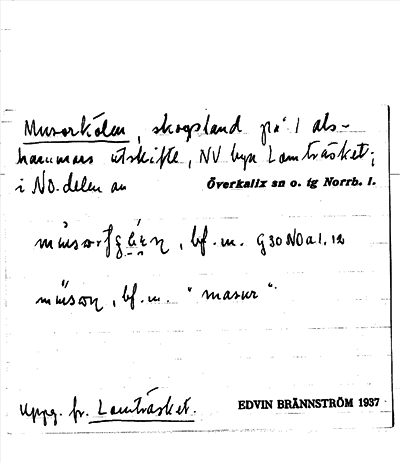 Musorkölen, skogsland på 1 als-
hammars utskifte, NV byn Lomträsket;
i NO. delen av Överkalix sn o. tg Norrb. l.
bf. m. G30 NO a 1. 12
bf. m. "masur".
Uppg. fr. Lomträsket. EDVIN BRÄNNSTRÖM 1937